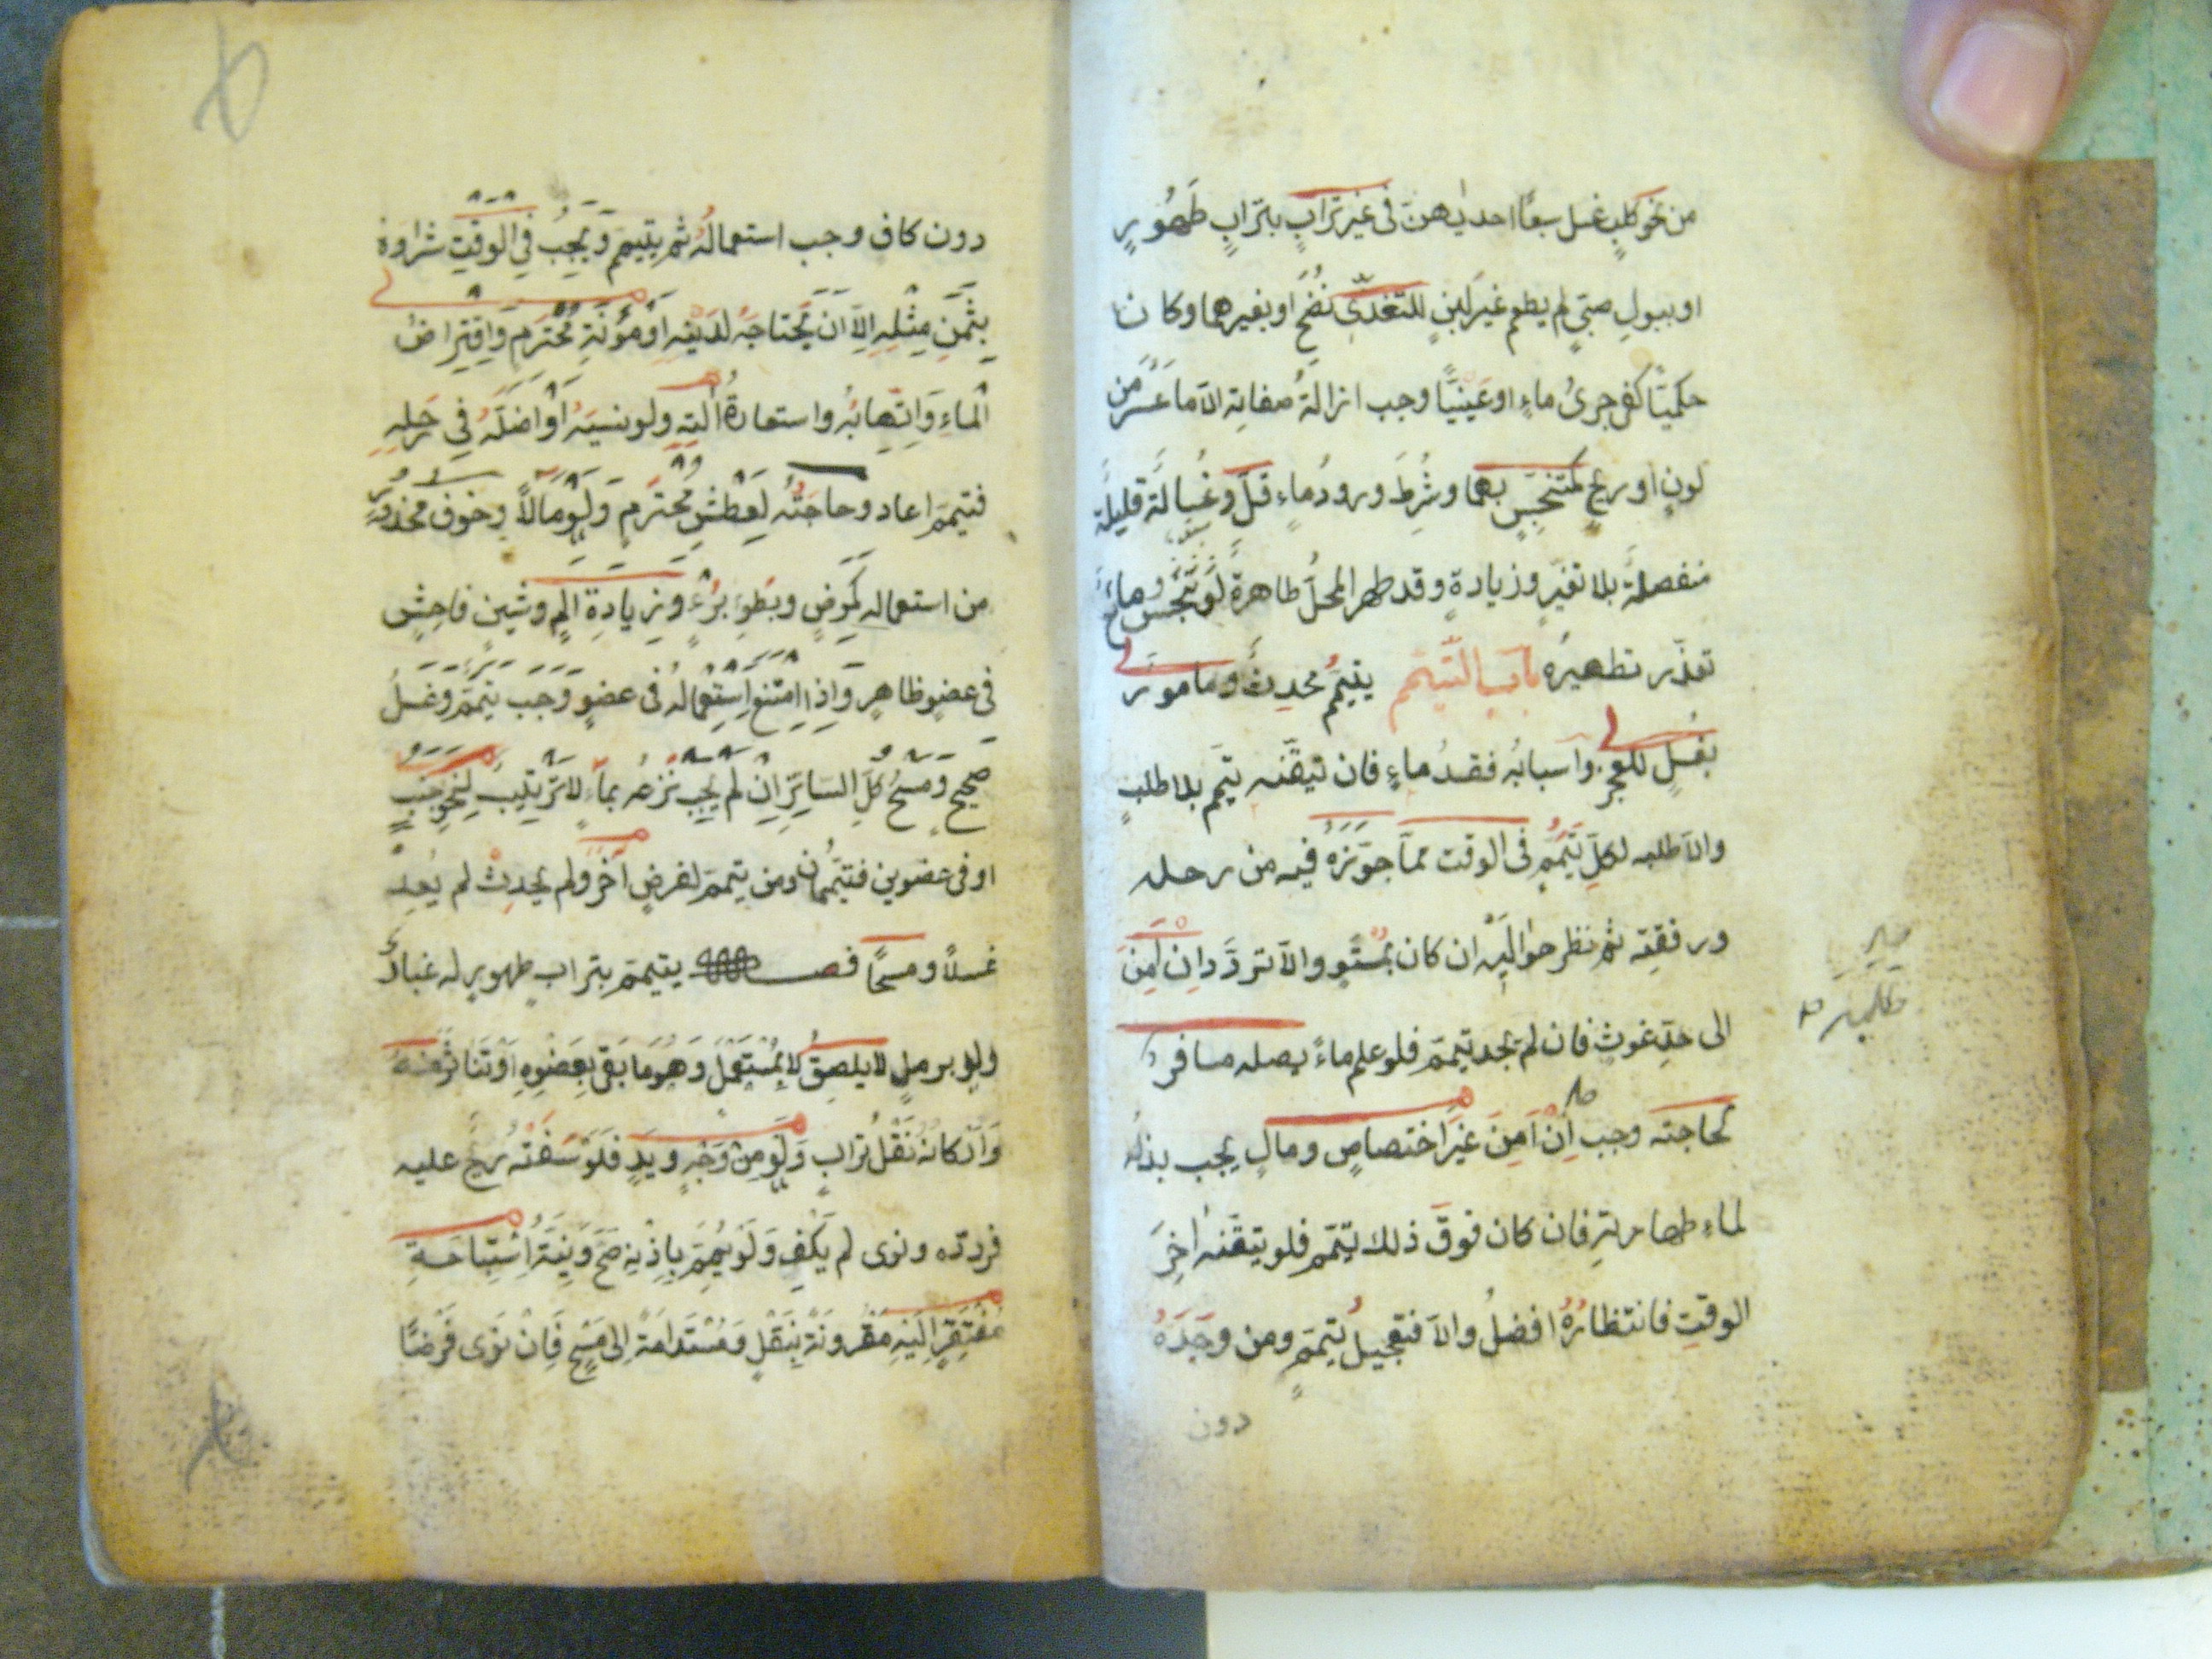 من نحو كلب غسل سبعا احديهن في غير تراب بتراب طهور
او ببول صبي لم يطعم غير لبن للتغذي نضح او بغيرهما وكان
حكميا كفى جري ماء او عينيا وجب ازالة صفاته الا ما عسر من
لون او ريح كمتنجس بهما وشرط ورود ماء قل وغسالة قليلة
منفصلة بلا تغير وزيادة وقد طهر المحل طاهرة ولو تنجس مائع
تعذر تطهيره باب التيمم يتيمم محدث ومامور
بغسل للعجز واسبابه فقد ماء فان تيقنه تيمم بلا طلب
والا طلبه لكل تيمم في الوقت مما جوزه فيه من رحله
ورفقته ثم نظر حواليه ان كان بمستو والا تردد ان امن
الى حد غوث فان لم يجد تيمم فلو علم ماء يصله مسافر
لحاجته وجب ان امن غير اختصاص ومال يجب بذله
لماء طهارته فان كان فوق ذلك تيمم فلو تيقنه اخر
الوقت فانتظاره افضل والا فتعجيل تيمم ومن وجده
دون
دون كاف وجب استعماله ثم يتيمم ويجب في الوقت شراوه
بثمن مثله الا ان يحتاجه لدينه او مؤنة محترم واقتراض
الماء واتهابه واستعارة آلته ولو نسيه او اضله في رحله
فتيمم اعاد وحاجته لعطش محترم ولو مآلا وخوف محذور
من استعماله كمرض وبطؤ برء وزيادة الم وشين فاحش
في عضو ظاهر واذا امتنع استعماله في عضو وجب تيمم وغسل
صحيح ومسح كل الساتر ان لم يجب نزعه بماء لا ترتيب لنحو جنب
او في عضوين فتيممان ومن تيمم لفرض آخر ولم يحدث لم يعد
غسلا ومسحا فصـــل يتيمم بتراب طهور له غبار
ولو برمل لا يلصق لا بمستعمل وهو ما بقي بعضوه او تناثر منه
واركانه نقل تراب ولو من وجه ويد فلو سفته ريح عليه
فردده ونوى لم يكف ولو يمم باذنه صح ونية استباحة
مفتقر اليه مقرونة بنقل ومستدامة الى مسح فان نوى فرضا